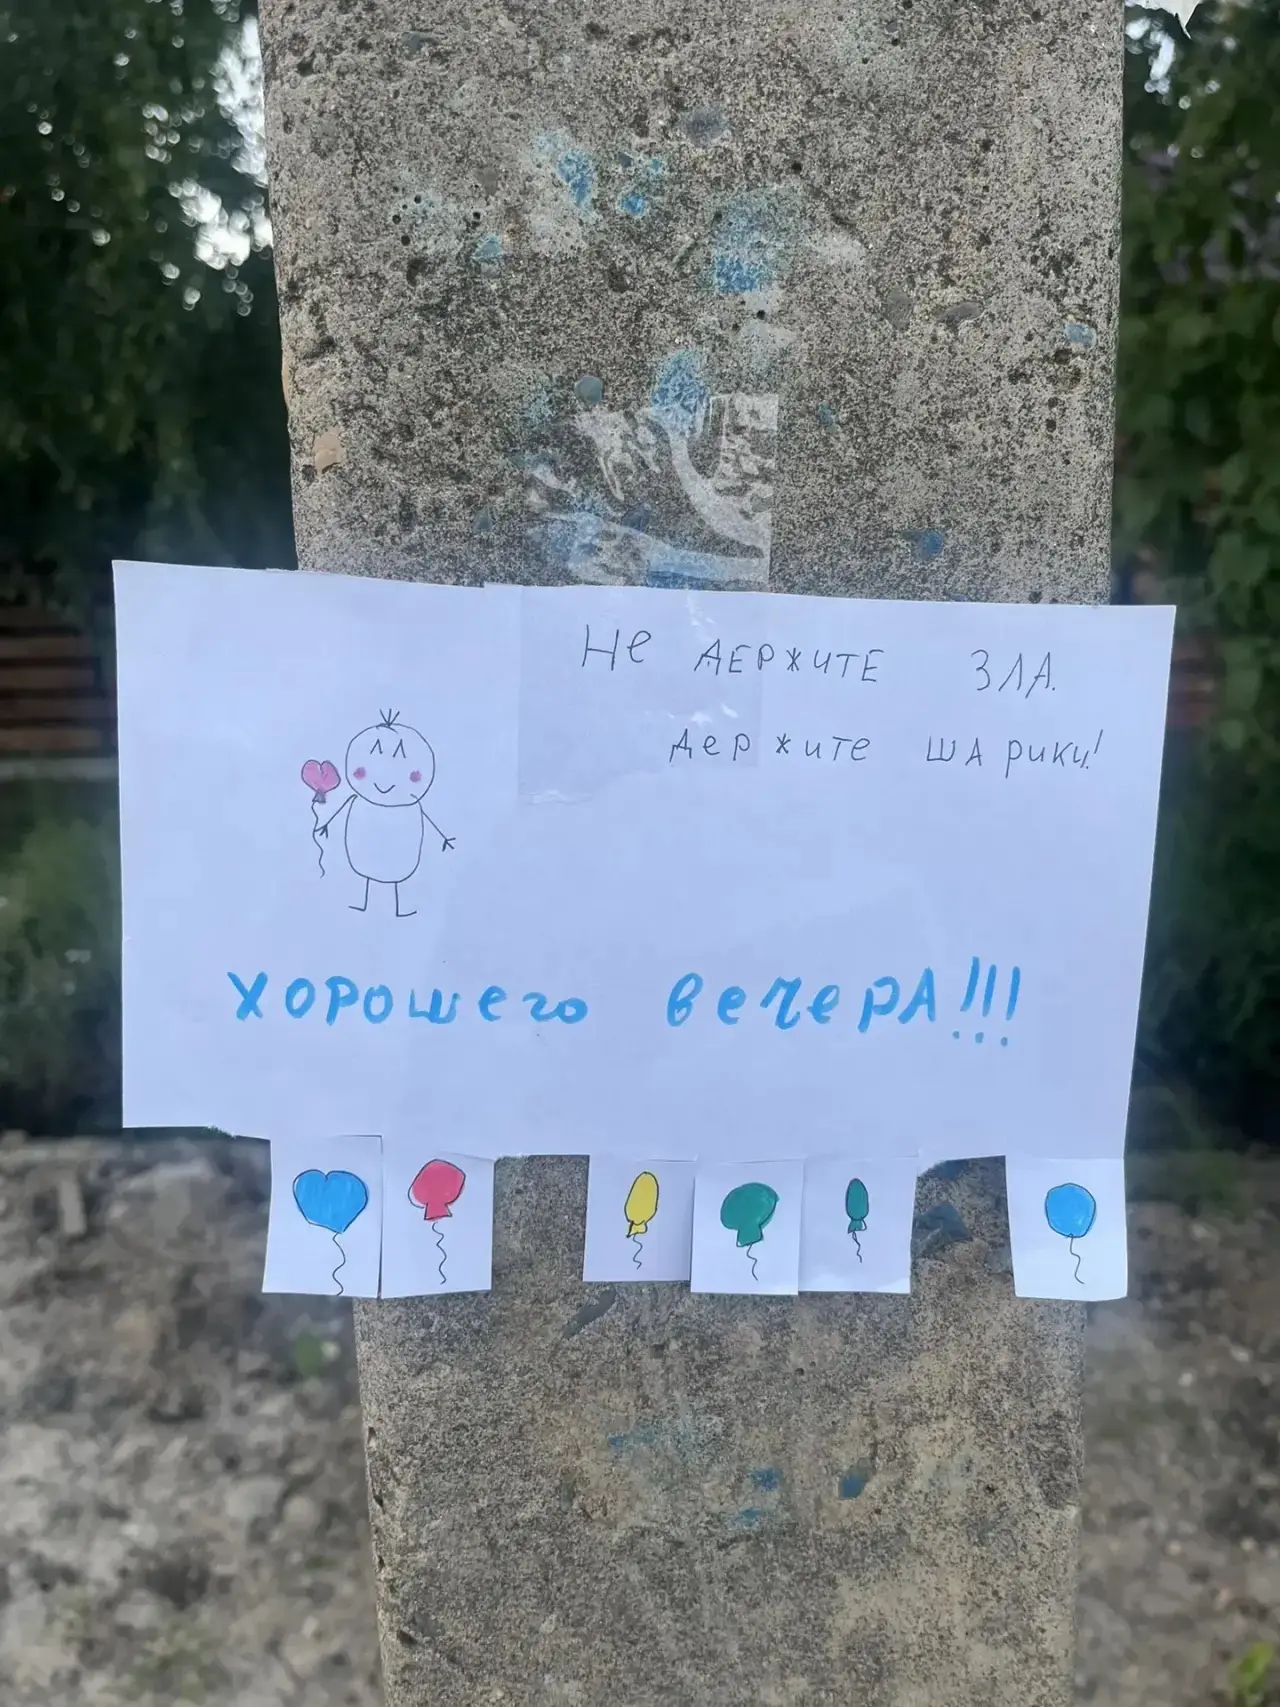 Не держите зла.
держите шарики!
хорошего вечера!!!